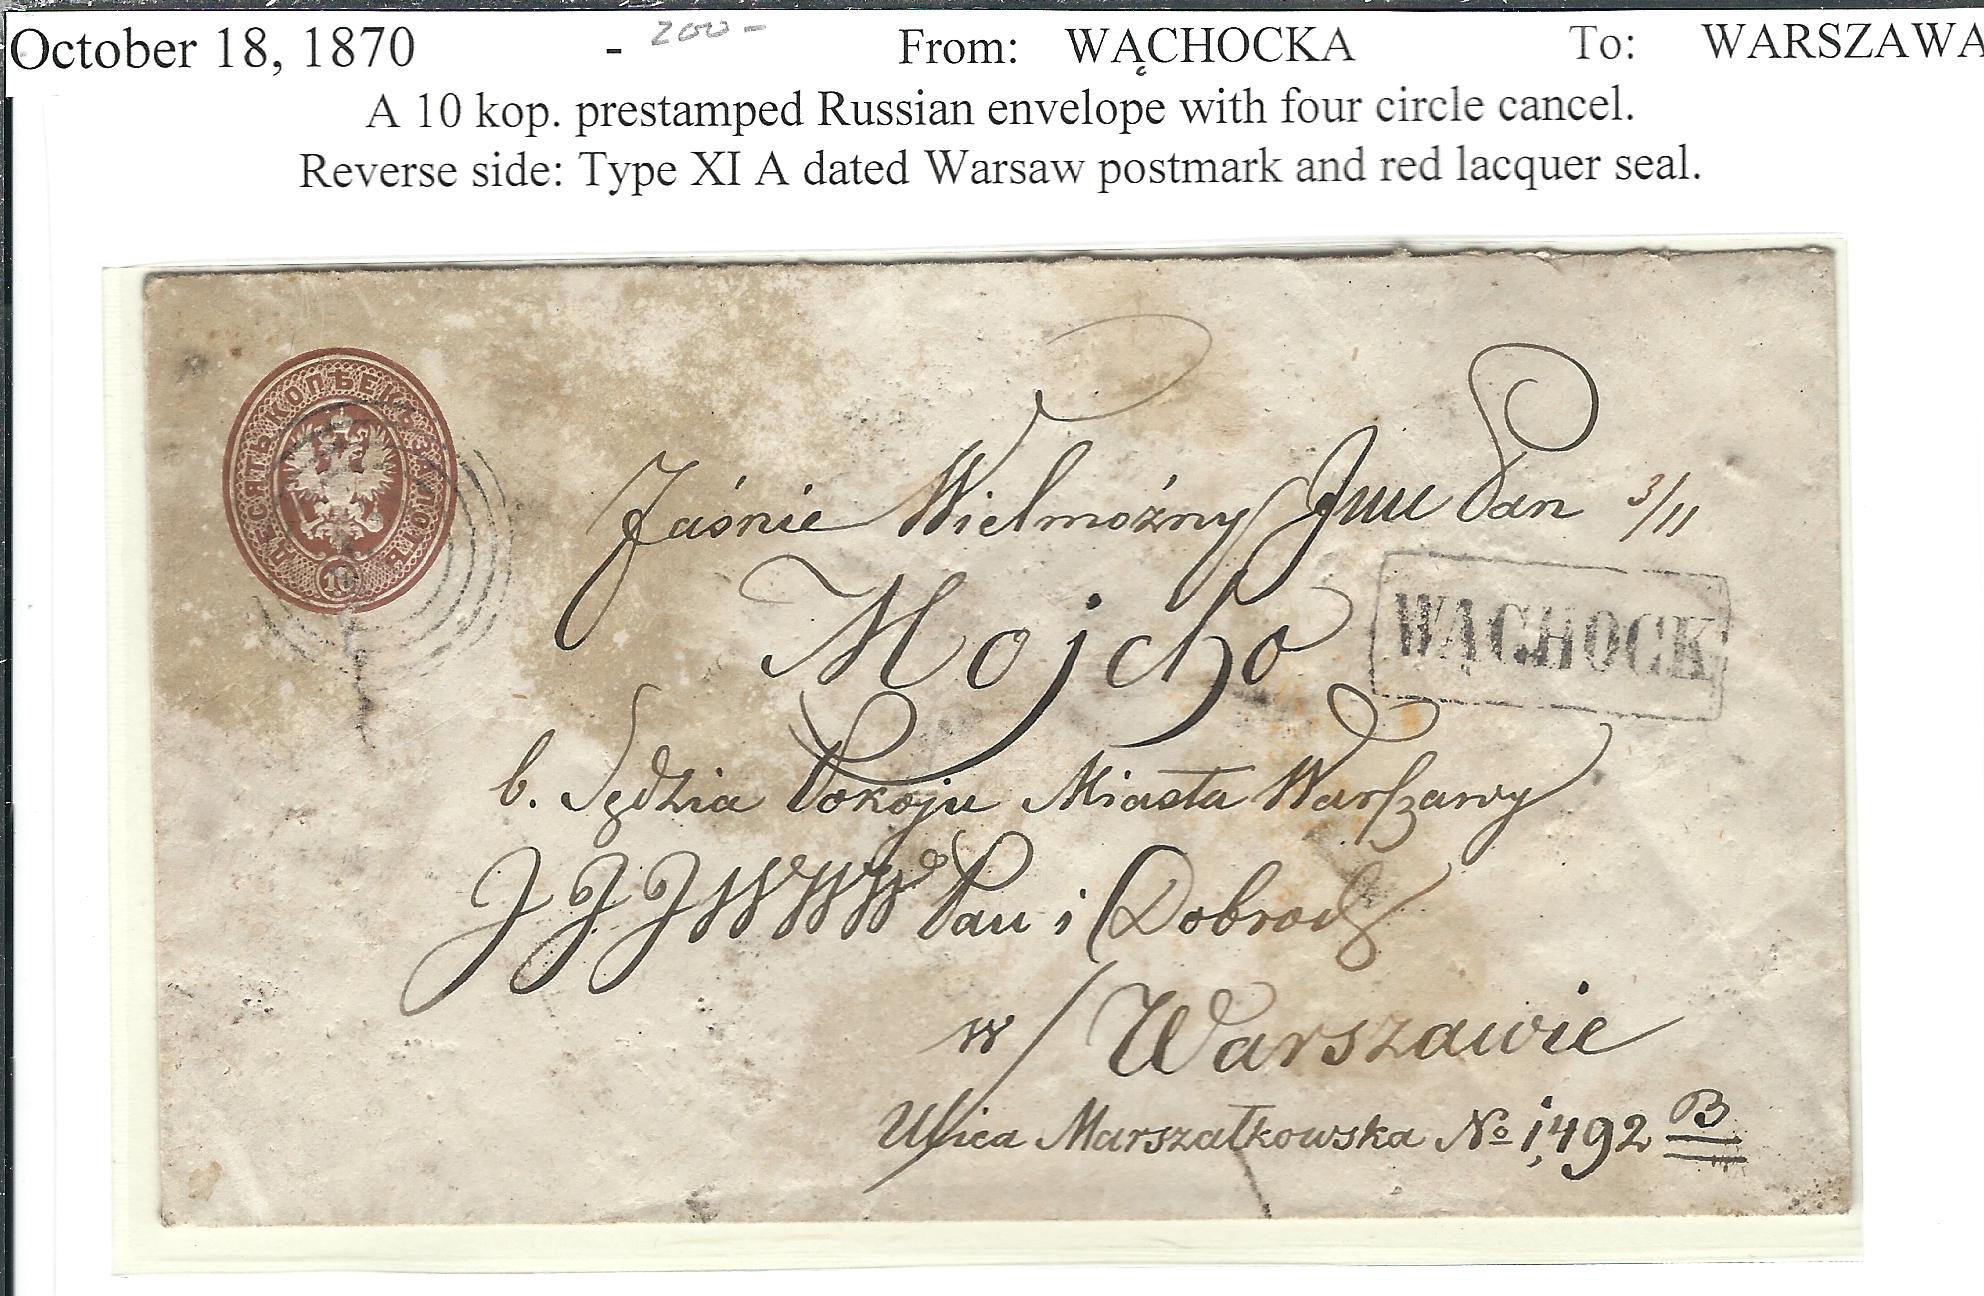 October 18, 1870 - 200 - From: WĄCHOCKA To: WARSZAWA
A 10 kop. prestamped Russian envelope with four circle cancel.
Reverse side: Type XI A dated Warsaw postmark and red lacquer seal.
ДЕСЯТЬ КОПѢЕКЪ ЗА ЛОТЪ
10
Jaśnie Wielmożny Jmu Pan 3/11
Mojcho
WĄCHOCK
b. Sędzia Pokoju Miasta Warszawy
J J J W W W Pan i Dobrodz
w/ Warszawie
Ulica Marszałkowska No 1,492 B